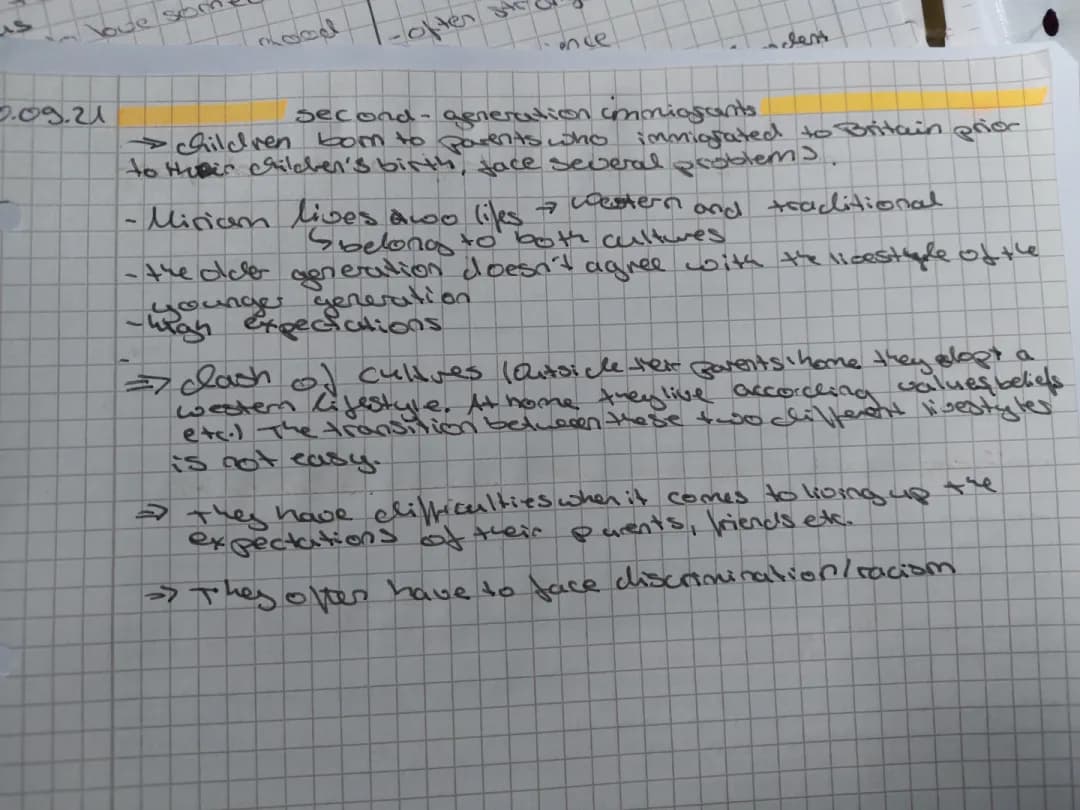 mood
- often
ence
.09.21 second-generation immigrants
→ Children born to parents who immigrated to Britain prior
to their children's birth, face several problems.
- Miriam lives two lifes → western and traditional
↳ belong to both cultures
- the older generation doesn't agree with the livestyle of the
younger generation
- high expectations
-
⇒ Clash of cultures (Outside their parents' home they adopt a
western lifestyle. At home they live according values, beliefs
etc.) The transition between these two different livestyles
is not easy.
⇒ They have difficulties when it comes to living up the
expectations of their parents, friends etc.
⇒ They often have to face discrimination/racism